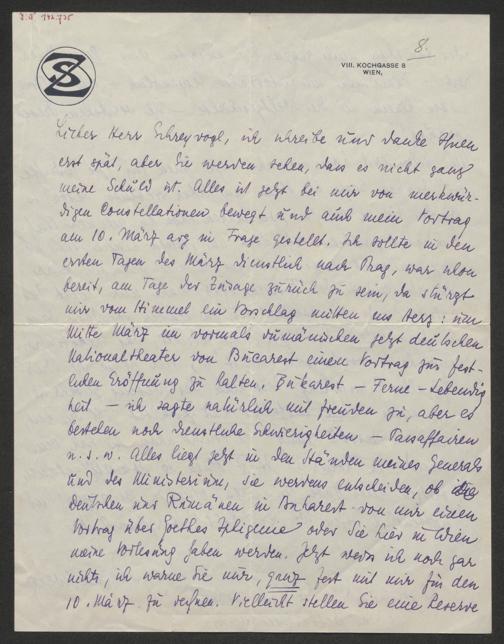 8.
VIII. KOCHGASSE 8
WIEN,
SZ
Lieber Herr Schreyvogl, ich schreibe und danke Ihnen
erst spät, aber Sie werden sehen, dass es nicht ganz
meine Schuld ist. Alles ist jetzt bei mir von merkwür-
digen Constellationen bewegt und auch mein Vortrag
am 10. März arg in Frage gestellt. Ich sollte in den
ersten Tagen des März dienstlich nach Prag, war schon
bereit, am Tage der Zusage zurück zu sein, da stürzt
mir vom Himmel ein Vorschlag mitten ins Herz: um
Mitte März im vormals rumänischen jetzt deutschen
Nationaltheater von Bucarest einen Vortrag zur fest-
lichen Eröffnung zu halten. Bukarest – Ferne – Lebendig
keit – ich sagte natürlich mit Freuden zu, aber es
bestehen noch dienstliche Schwierigkeiten – Passaffairen
u. s. w. Alles liegt jetzt in den Händen meines Generals
und des Ministeriums, sie werdens entscheiden, ob die
Deutschen und Rumänen in Bukarest von mir einen
Vortrag über Goethes Iphigenie oder Sie hier in Wien
meine Vorlesung haben werden. Jetzt weiss ich noch gar
nichts, ich warne Sie nur, ganz fest mit mir für den
10. März zu rechnen. Vielleicht stellen Sie eine Reserve